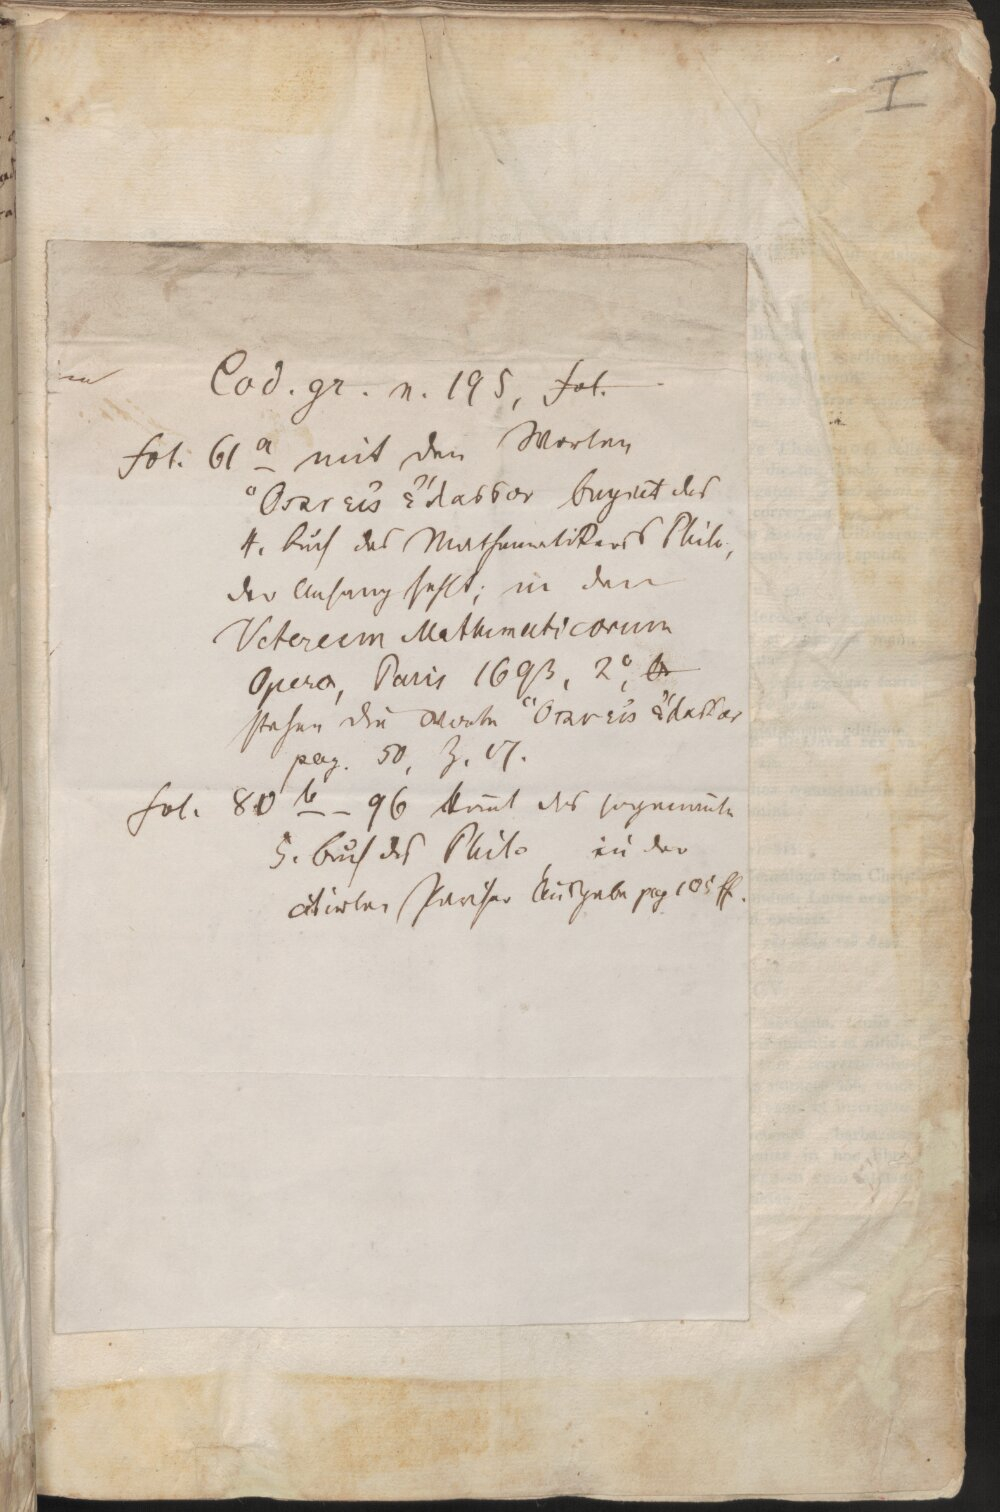 I
Cod. gr. n. 195, fol.
fol. 61 a mit den Worten
Ὅταν εἰς ἔλασσον beginnt das
4. Buch des Mathematikers Philo,
der Anfang fehlt; in den
Veterum Mathematicorum
Opera, Paris 1693, 2°,
stehen die Worte Ὅταν εἰς ἔλασσον
pag. 50, Z. 17.
fol. 80 b – 96 das sogenannte
5. Buch des Philo in der
citirten Pariser Ausgabe pag 105 ff.